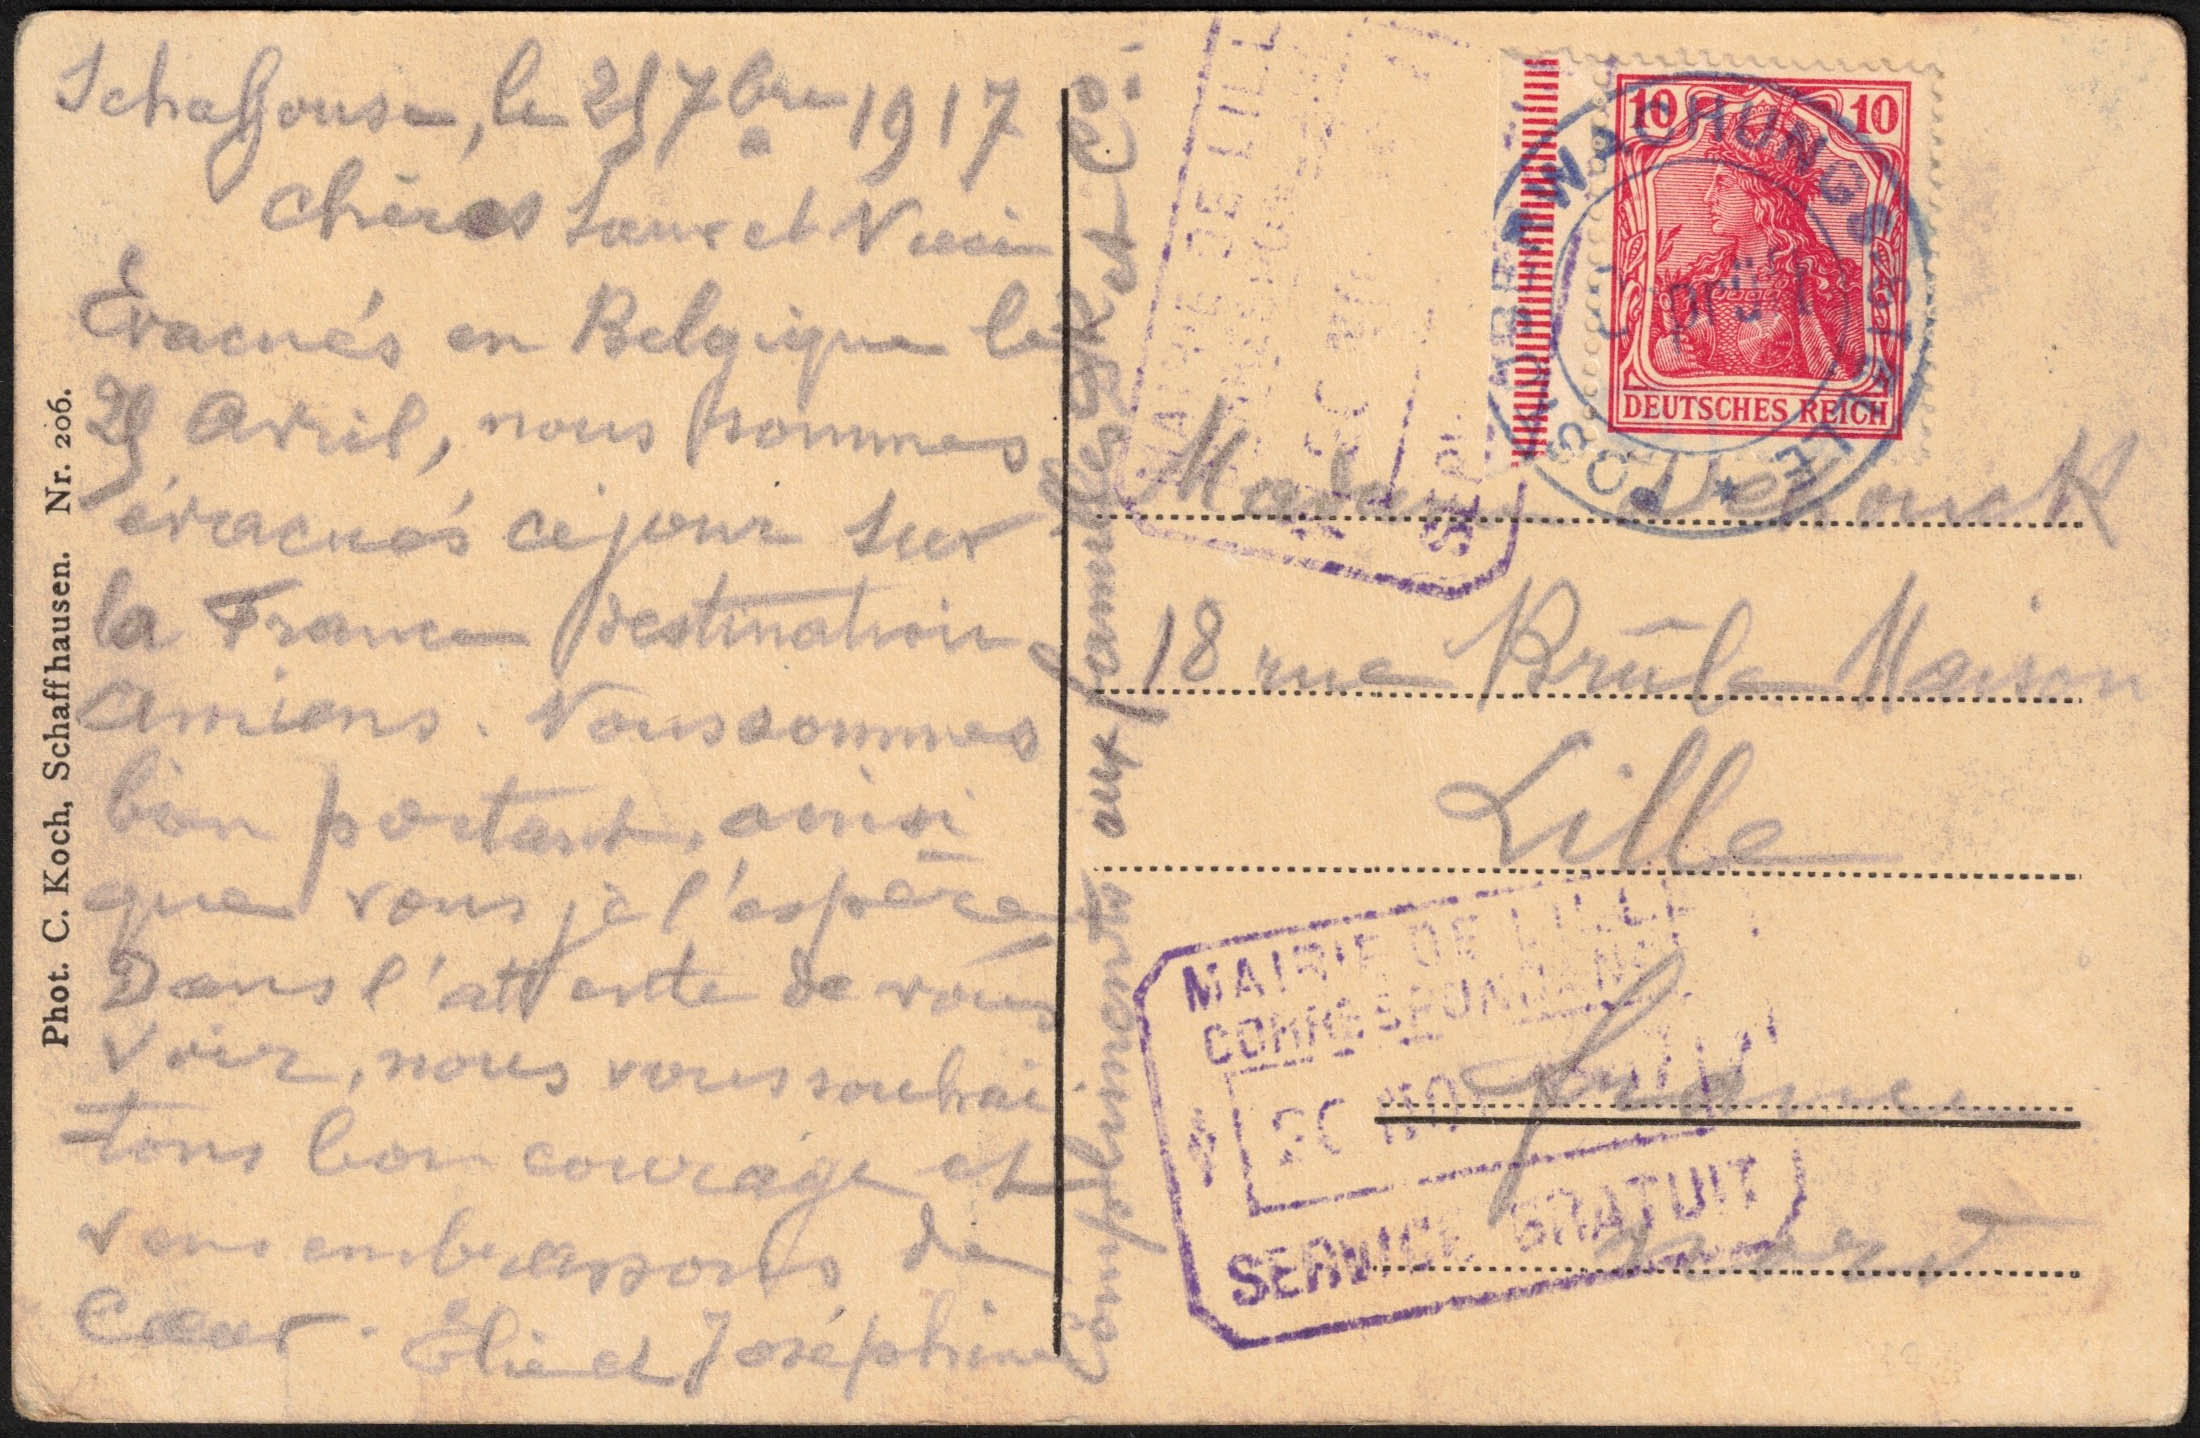 Schaffouse, le 25 7bre 1917
Chères Laure et
Évacués en Belgique le
25 Avril, nous sommes
évacués ce jour sur
la France destination
Amiens. Nous sommes
bien portant, ainsi
que vous je l'espère
Dans l'attente de vous
voir, nous vous souhai
tons bon courage et
vous embrassons de
Cœur. Élie et Joséphine
Compliments aux familles et Co.
Phot. C. Koch, Schaffhausen. Nr. 206.
10 10
DEUTSCHES REICH
POSTÜBERWACHUNGSSTELLE
Geprüft
MAIRIE DE LILLE
Madame Dehouck
18 rue Brûle Maison
Lille
MAIRIE DE LILLE
CORRESPONDANCE
SERVICE GRATUIT
france
nord